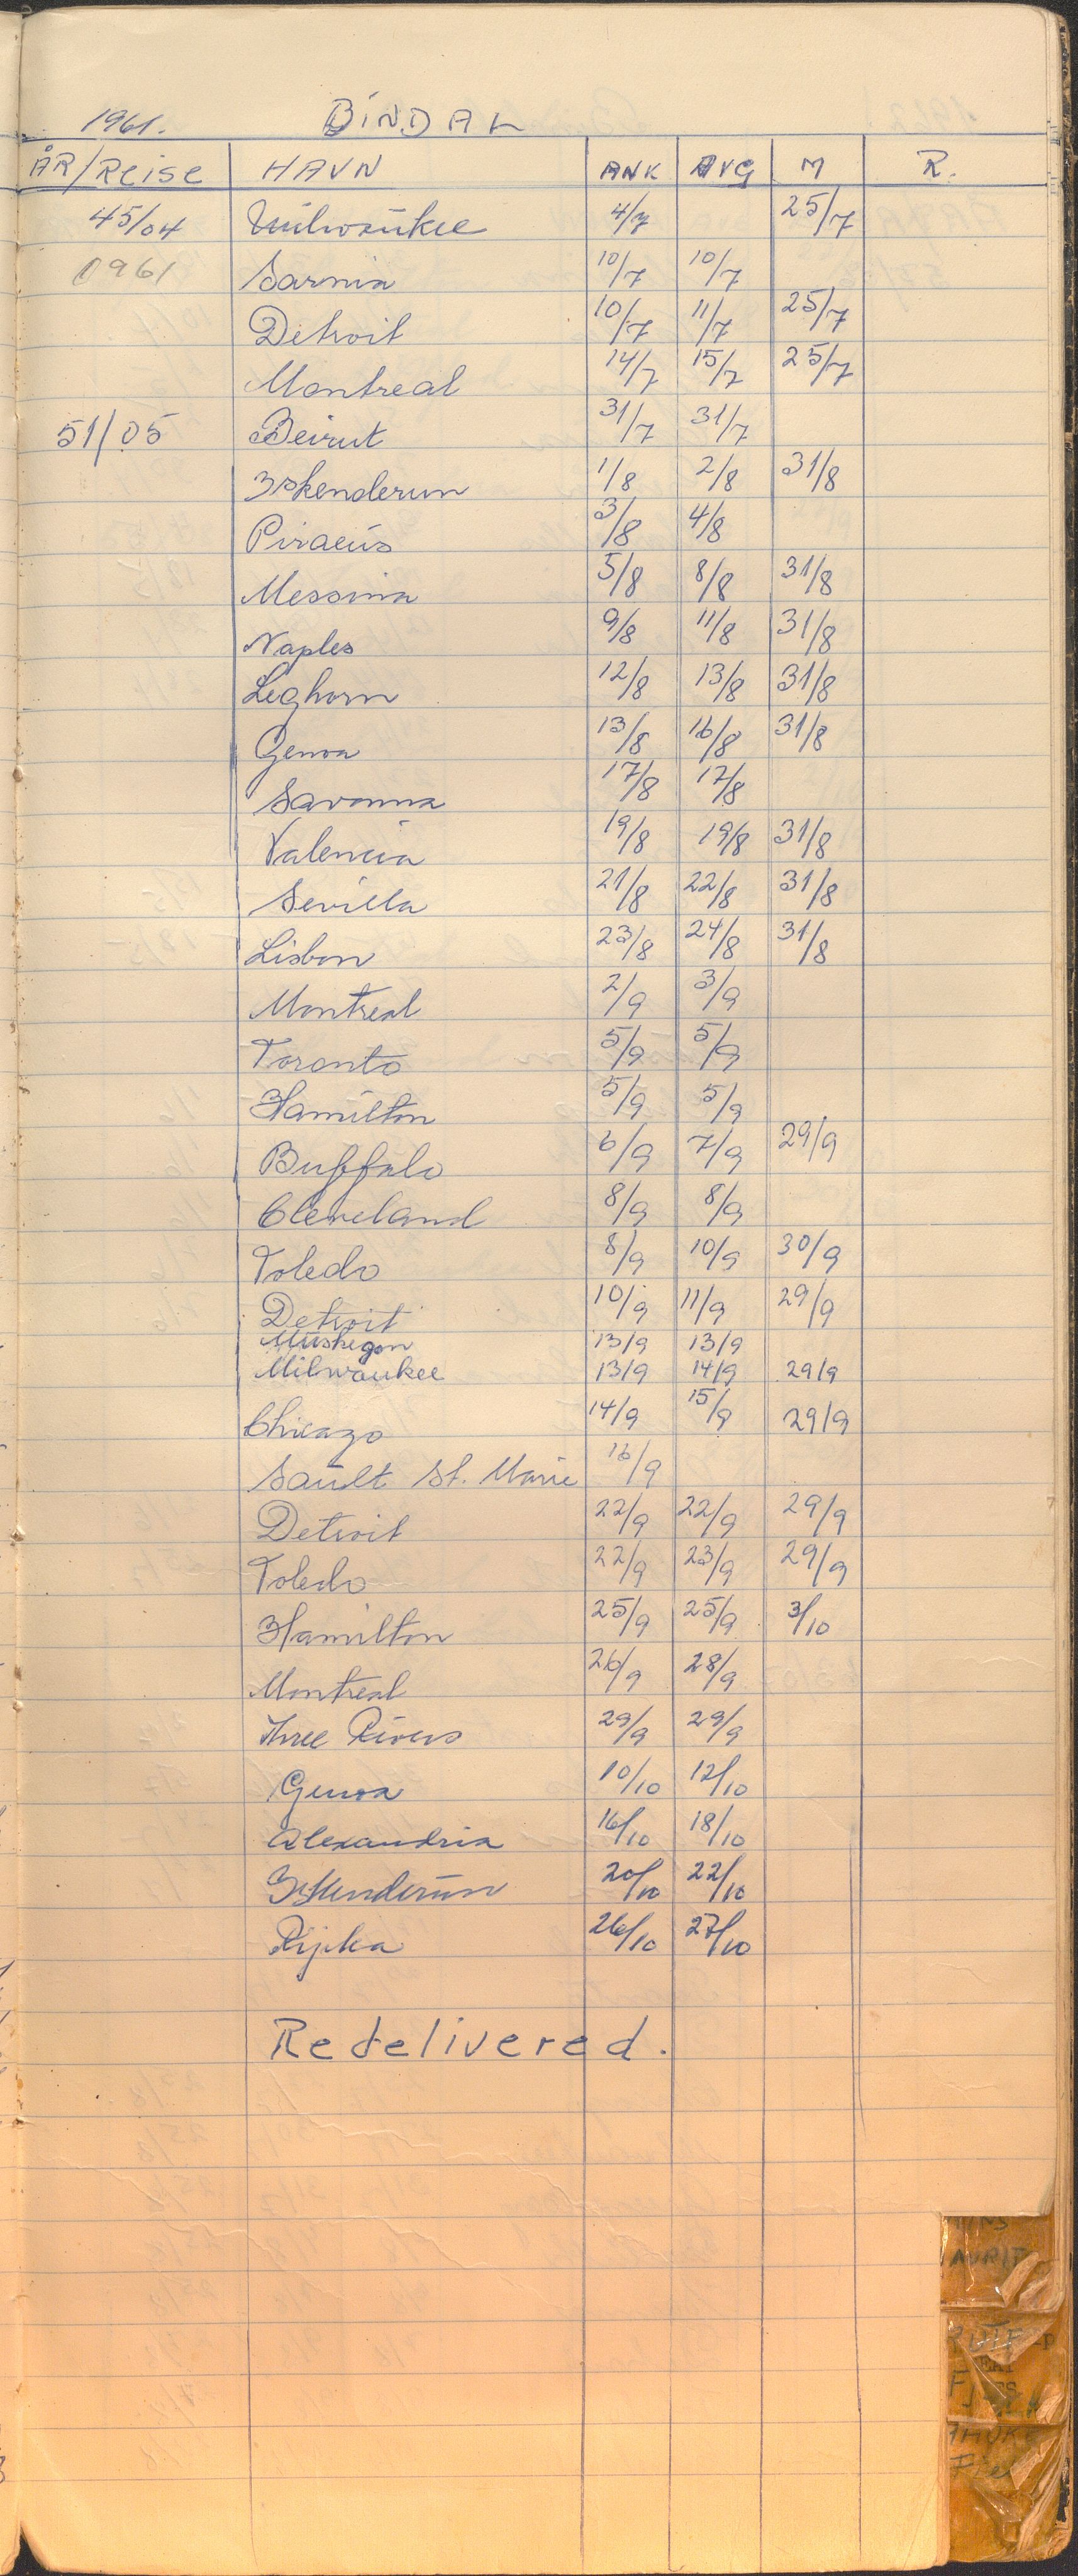 1961. BINDAL
ÅR/Reise HAVN ANK AVG M R.
45/04 Milwaukee 4/7 25/7
1961 Sarnia 10/7 10/7
Detroit 10/7 11/7 25/7
Montreal 14/7 15/7 25/7
51/05 Beirut 31/7 31/7
Iskenderun 1/8 2/8 31/8
Piraeus 3/8 4/8
Messina 5/8 8/8 31/8
Naples 9/8 11/8 31/8
Leghorn 12/8 13/8 31/8
Genoa 13/8 16/8 31/8
Savonna 17/8 17/8
Valencia 19/8 19/8 31/8
Sevilla 21/8 22/8 31/8
Lisbon 23/8 24/8 31/8
Montreal 2/9 3/9
Toronto 5/9 5/9
Hamilton 5/9 5/9
Buffalo 6/9 7/9 29/9
Cleveland 8/9 8/9
Toledo 8/9 10/9 30/9
Detroit 10/9 11/9 29/9
Muskegon 13/9 13/9
Milwaukee 13/9 14/9 29/9
Chicago 14/9 15/9 29/9
Sault St. Marie 16/9
Detroit 22/9 22/9 29/9
Toledo 22/9 23/9 29/9
Hamilton 25/9 25/9 3/10
Montreal 26/9 28/9
Three Rivers 29/9 29/9
Genoa 10/10 12/10
Alexandria 16/10 18/10
Iskenderun 20/10 22/10
Rijeka 26/10 27/10
Redelivered.